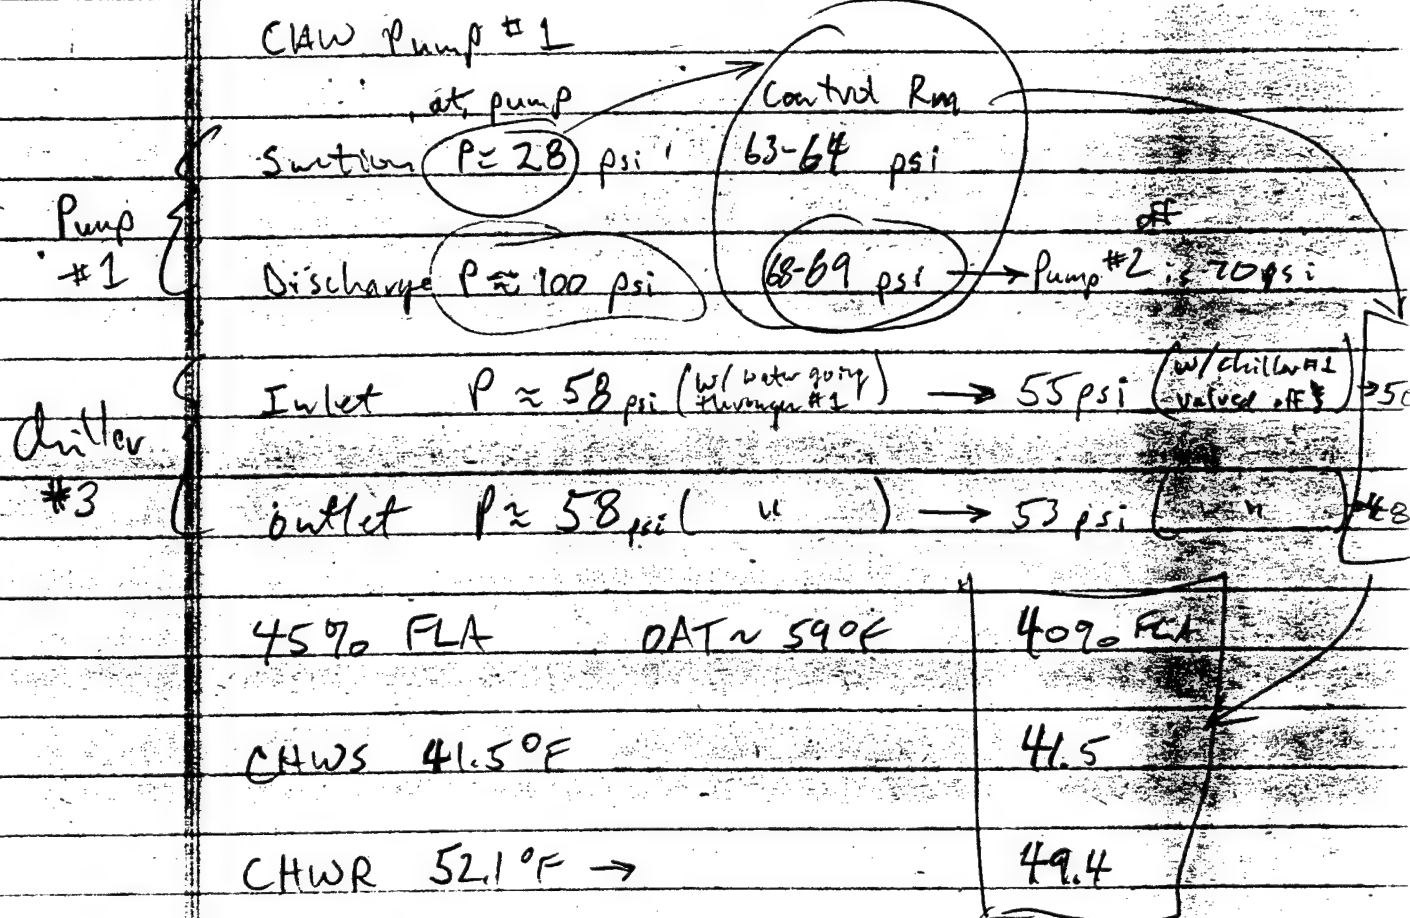 CHW Pump #1
at pump Control Rm
Suction P≈28 psi 63-64 psi
Pump #1
off
Discharge P≈100 psi 68-69 psi → Pump #2 is 70psi
Inlet P≈58 psi (w/ water going through #1) → 55psi (w/ chiller #1 valved off) →
Chiller #3
outlet P≈58 psi ( " ) → 53 psi ( " ) → 48
45% FLA OAT~59°F 40% FLA
CHWS 41.5°F 41.5
CHWR 52.1°F → 49.4